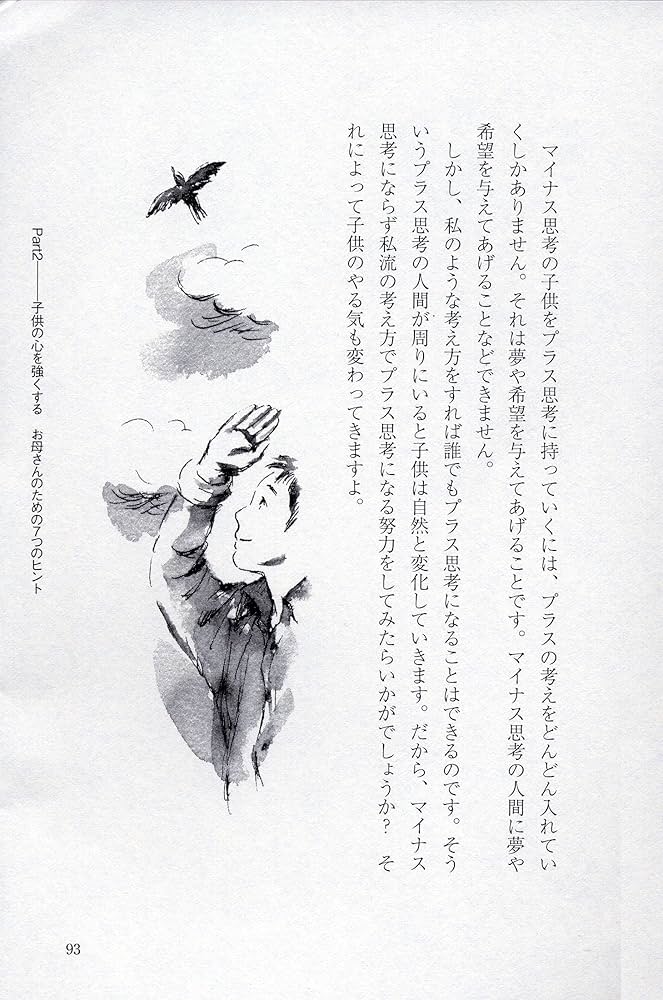 マイナス思考の子供をプラス思考に持っていくには、プラスの考えをどんどん入れてい
くしかありません。それは夢や希望を与えてあげることです。マイナス思考の人間に夢や
希望を与えてあげることなどできません。
しかし、私のような考え方をすれば誰でもプラス思考になることはできるのです。そう
いうプラス思考の人間が周りにいると子供は自然と変化していきます。だから、マイナス
思考にならず私流の考え方でプラス思考になる努力をしてみたらいかがでしょうか? そ
れによって子供のやる気も変わってきますよ。
Part2――子供の心を強くする お母さんのための7つのヒント
93